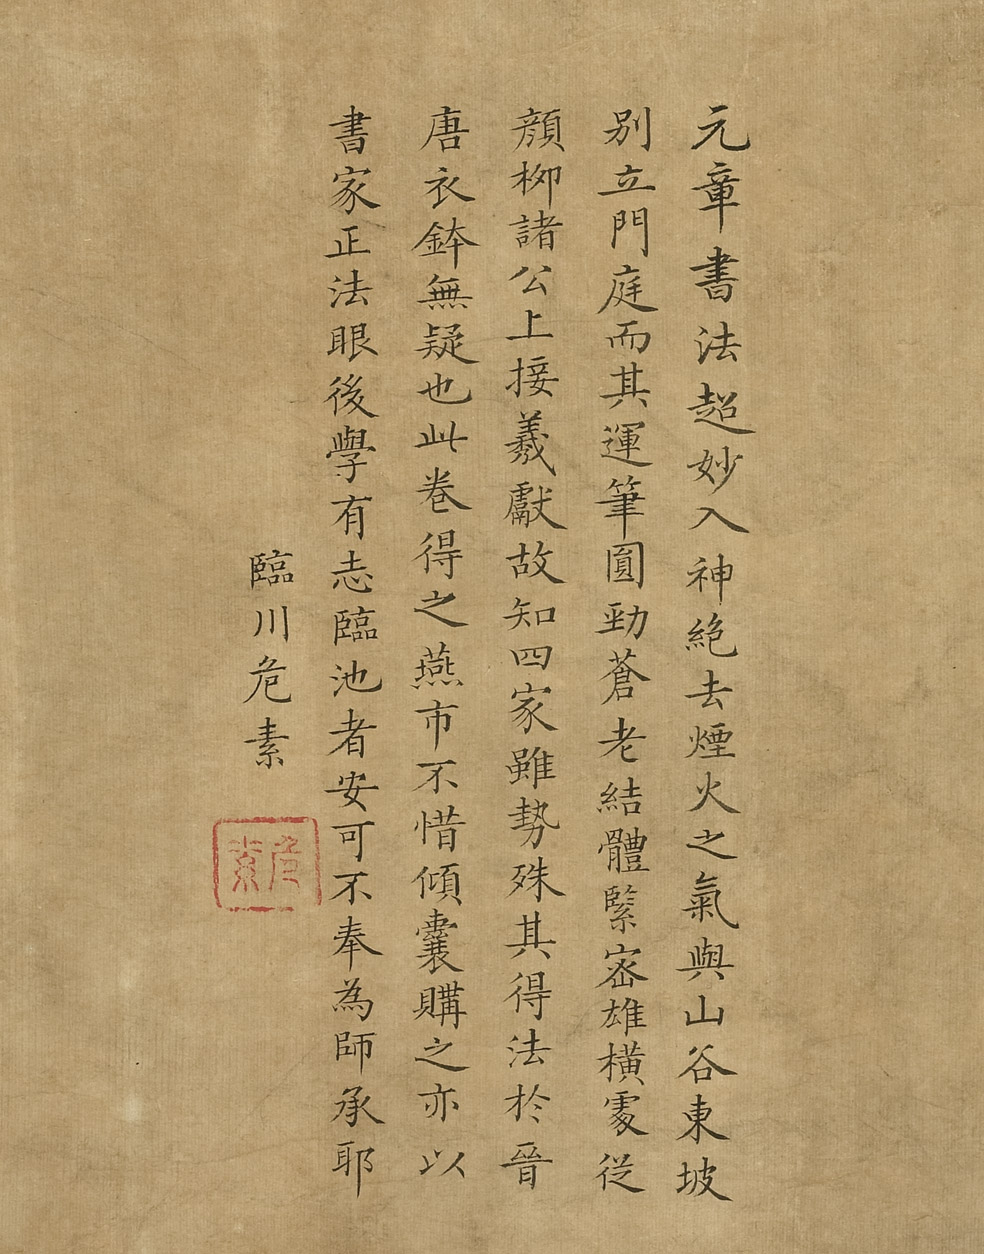 元章書法超妙入神絶去煙火之氣與山谷東坡
别立門庭而其運筆圓勁蒼老結體緊密雄橫處從
顔栁諸公上接羲獻故知四家雖勢殊其得法於晉
唐衣鉢無疑也此卷得之燕市不惜傾囊購之亦以
書家正法眼後學有志臨池者安可不奉為師承耶
臨川危素
危素